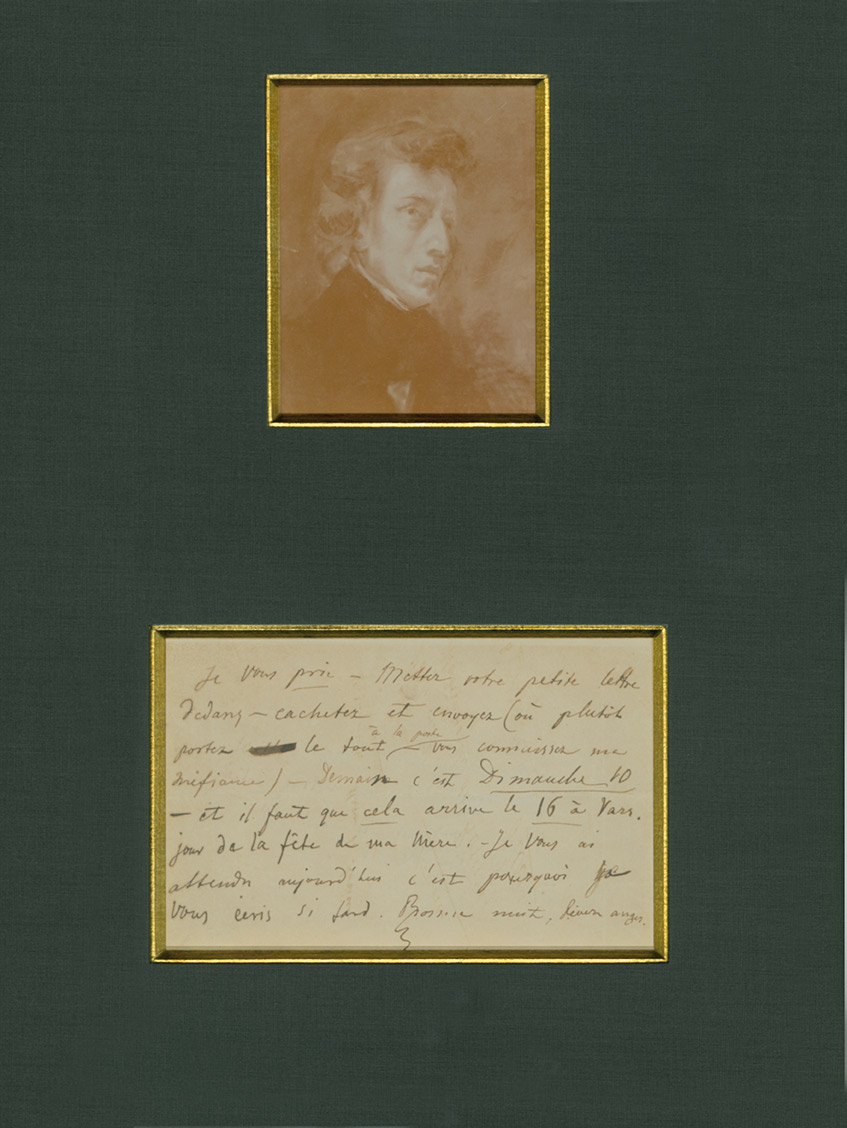 Je vous prie – Mettez votre petite lettre
dedans – cachetez et envoyez (où plutôt
à la poste
portez le tout – vous connaissez ma
méfiance) – Demain c'est Dimanche 10
– et il faut que cela arrive le 16 à Vars.
jour de la fête de ma Mère. – Je vous ai
attendu aujourd'hui c'est pourquoi je
vous écris si tard. nuit,